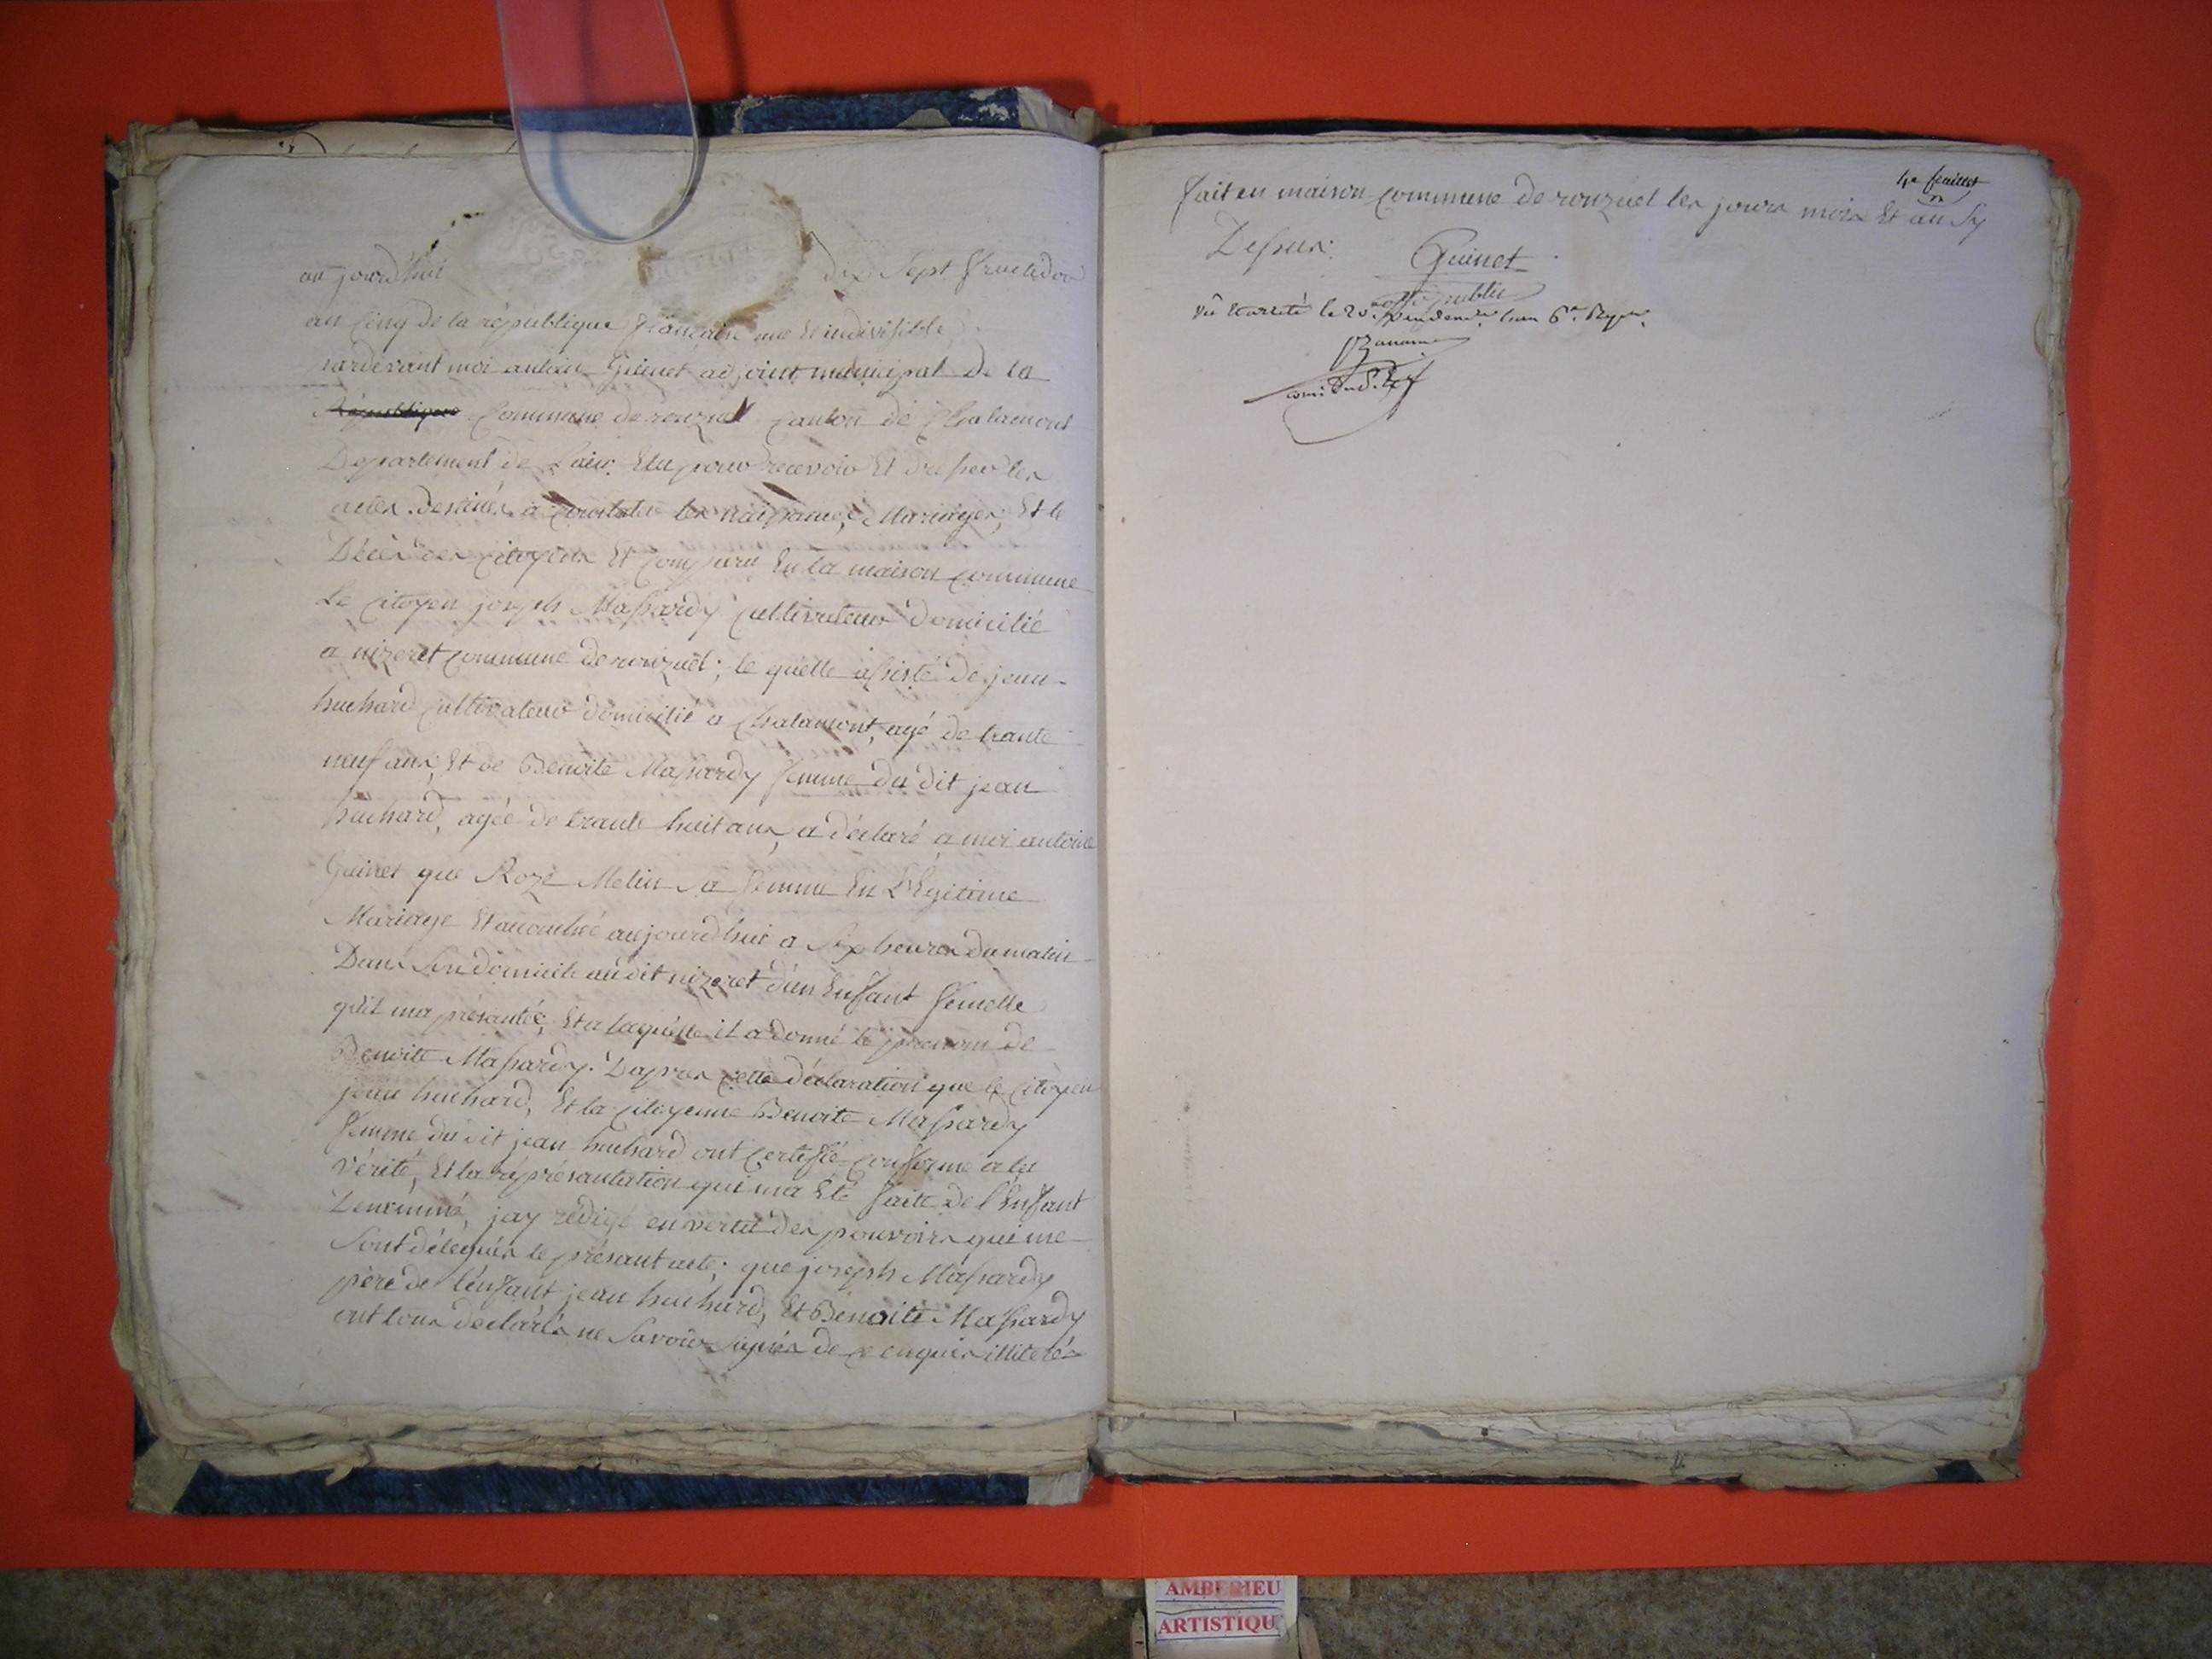 au jourd'hui dix Sept fructidor
an Cinq de la république française une et indivisible
pardevant moi antoine Guinet adjoint municipal de la
République Commune de ronzuel canton de Chalamont
Departement de Lain. Elu pour recevoir Et dresser les
actes destinés a constater les naissances, Mariages, Et le
Décès des citoyens Et comparu En la maison commune
Le Citoyen joseph Massardy cultivateur domicilié
a nizeret commune de ronzuel; le quelle assisté de jean
huchard cultivateur domicilié a chalamont, agé de trante
neuf ans, Et de Benoite Massardy femme du dit jean
huchard, agée de trante huit ans, a déclaré a moi antoine
Guinet que Roze Melin Sa femme En Légitime
Mariage Et accouchée aujourdhui a Six heures du matin
Dans Son domicile audit nizeret d'un Enfant femelle
qu'il ma présantée, Et a laquelle il a donné le prenom de
Benoite Massardy. Dapres cette déclaration que le citoyen
jean huchard, Et la citoyenne Benoite Massardy
femme du dit jean huchard ont certifié conforme a la
vérité, Et la réprésantation qui ma Eté faite de l'Enfant
Denommé, jay rédigé en vertu des pouvoirs qui me
Sont délegués le présant acte; que joseph Massardy
père de l'enfant jean huchard, Et Benoite Massardy
ont tous declarés ne Savoir Signés de ce enquis illiterés
4e feuillet
fait en maison commune de ronzuel les jours mois Et an Sy
Dessus.
Guinet
offi. public
Vû et arrêté le 20. Vendem.re lan 6e. Rep.
AMBERIEU
ARTISTIQU